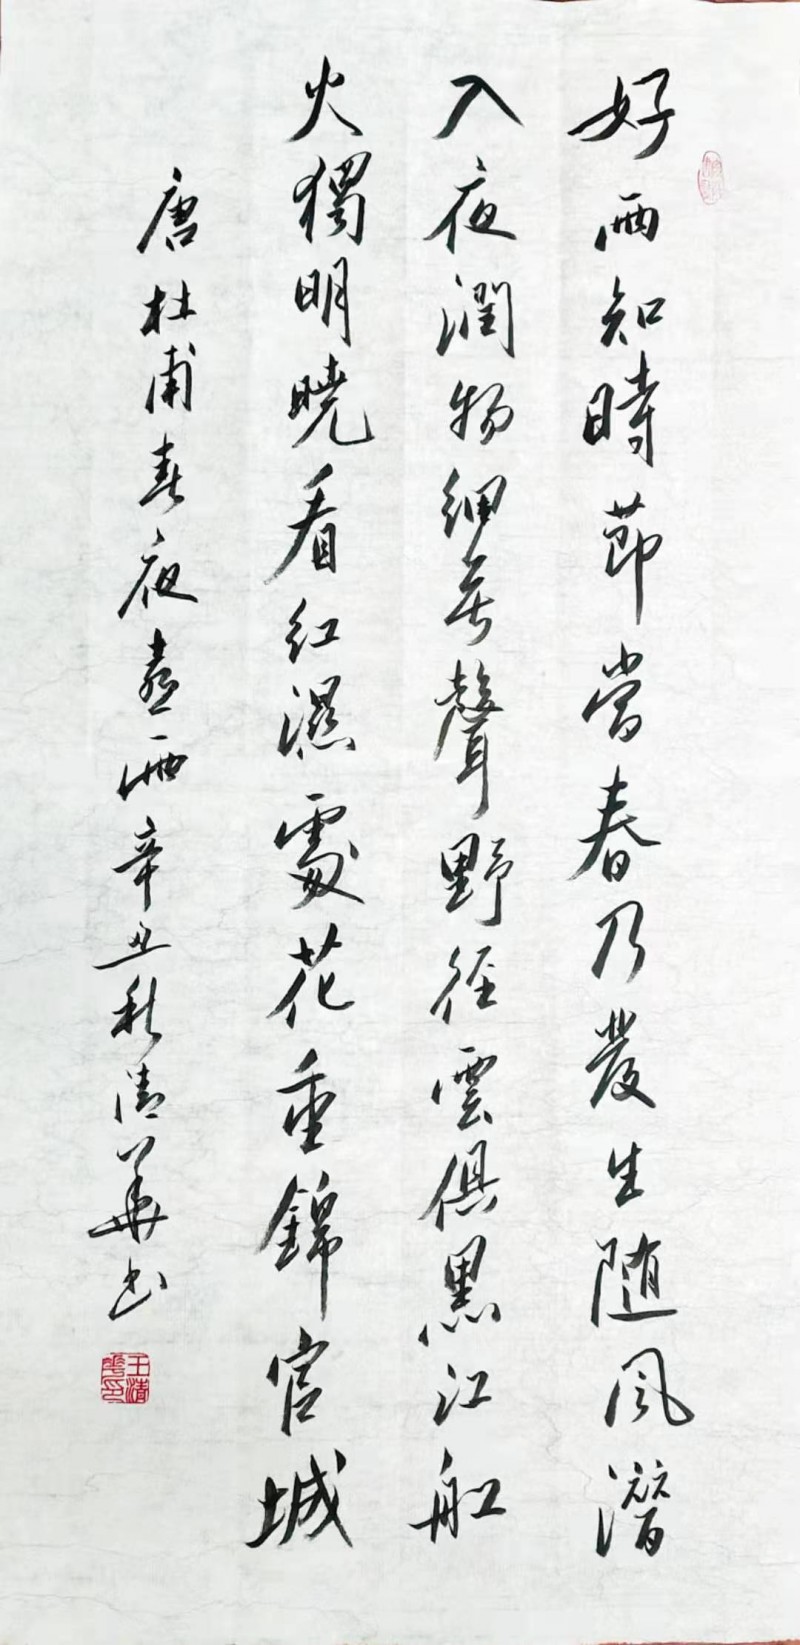 好雨知時節當春乃發生随風潛
入夜潤物細無聲野径雲俱黑江船
火獨明曉看红濕處花重錦官城
唐杜甫春夜喜雨辛丑秋清華书
王清華印